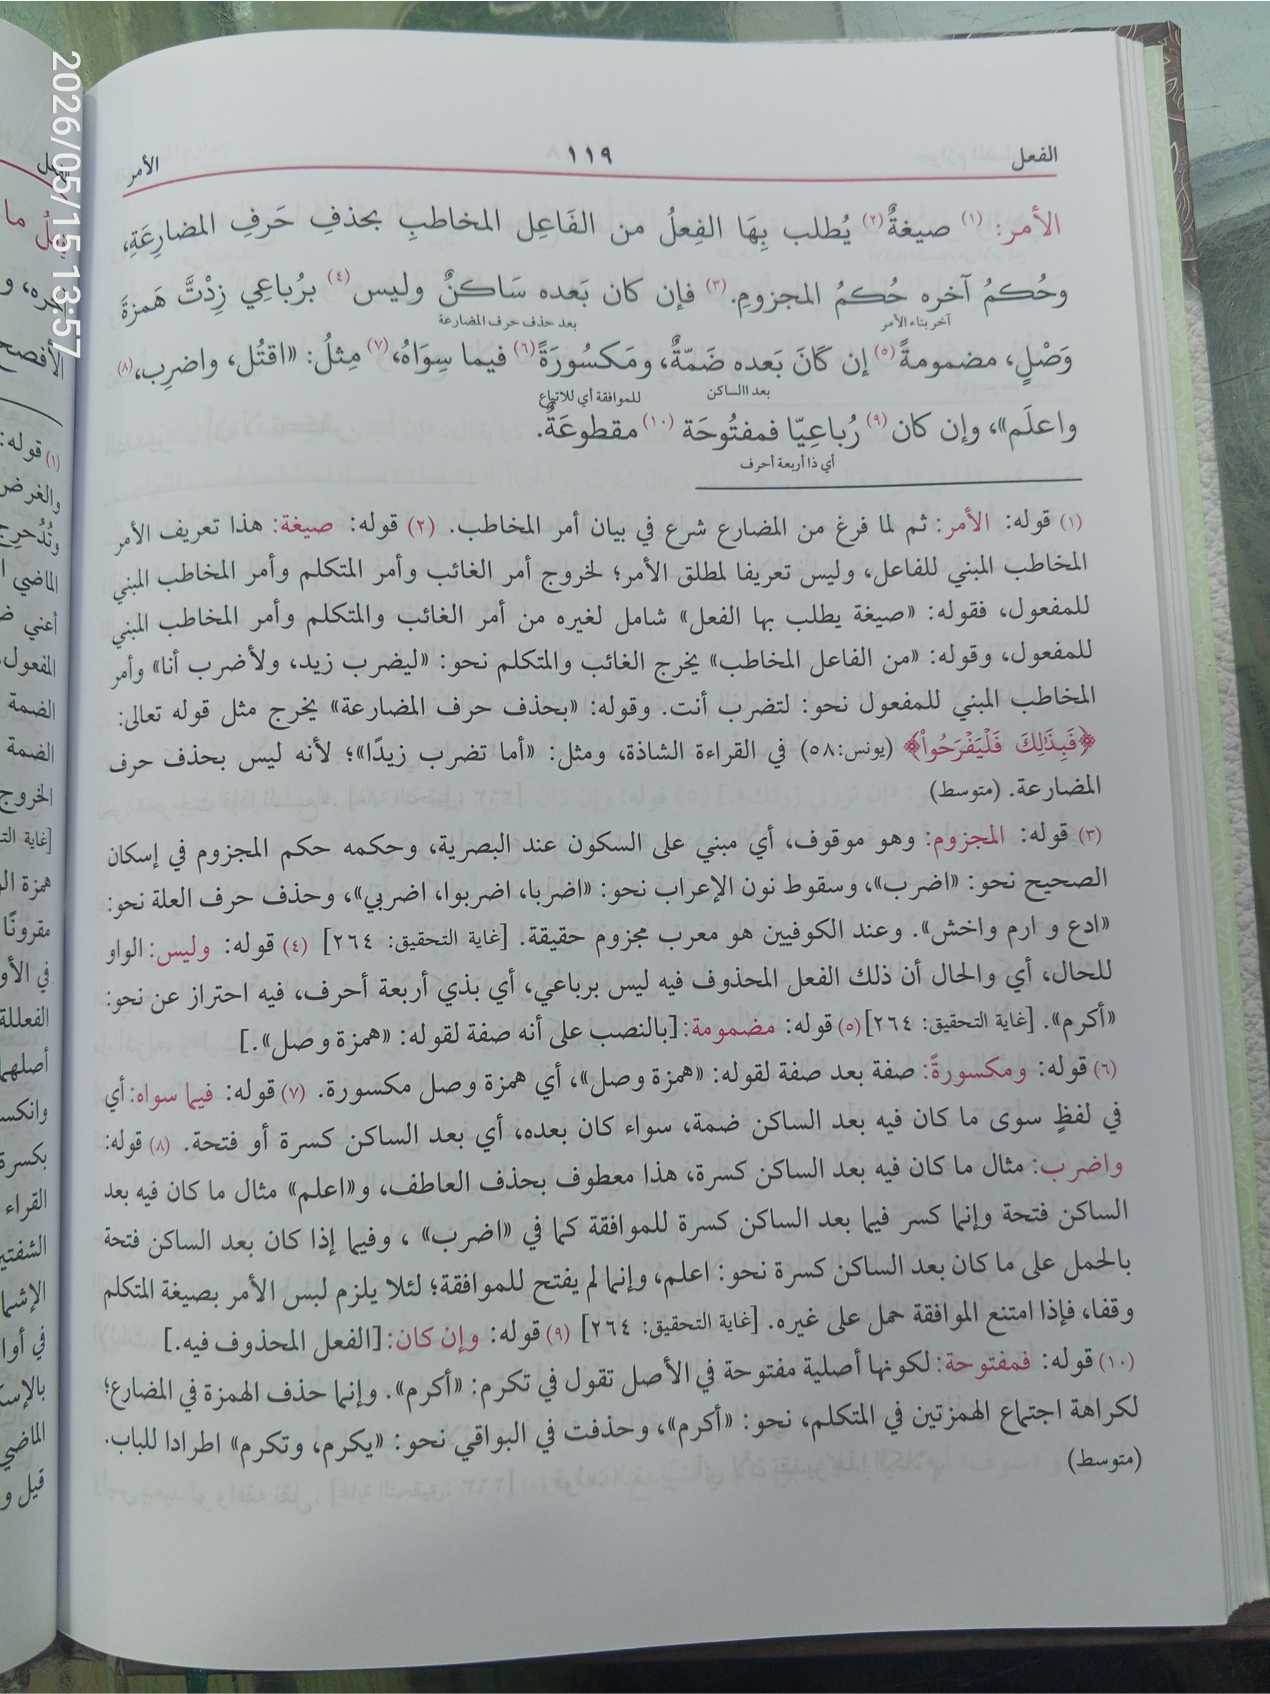 2026/05/15 13:57
الفعل ١١٩ الأمر
الأمر: (١) صيغةٌ(٢) يُطلب بِهَا الفِعلُ من الفَاعِل المخاطبِ بحذفِ حَرفِ المضارِعَةِ،
وحُكمُ آخره حُكمُ المجزومِ.(٣) فإن كان بَعده سَاكنٌ وليس(٤) برُباعِي زِدْتَّ هَمزةَ
آخر بناء الأمر بعد حذف حرف المضارعة
وَصْلٍ، مضمومةً(٥) إن كَانَ بَعده ضَمّةٌ، ومَكسُورَةً(٦) فيما سِوَاهُ،(٧) مِثلُ: «اقتُل، واضرِب،(٨)
بعد االساكن للموافقة أي للاتباع
واعلَم»، وإن كان(٩) رُباعِيّا فمفتُوحَة(١٠) مقطوعَةٌ.
أي ذا أربعة أحرف
(١) قوله: الأمر: ثم لما فرغ من المضارع شرع في بيان أمر المخاطب. (٢) قوله: صيغة: هذا تعريف الأمر
المخاطب المبني للفاعل، وليس تعريفا لمطلق الأمر؛ لخروج أمر الغائب وأمر المتكلم وأمر المخاطب المبني
للمفعول، فقوله: «صيغة يطلب بها الفعل» شامل لغيره من أمر الغائب والمتكلم وأمر المخاطب المبني
للمفعول، وقوله: «من الفاعل المخاطب» يخرج الغائب والمتكلم نحو: «ليضرب زيد، ولأضرب أنا» وأمر
المخاطب المبني للمفعول نحو: لتضرب أنت. وقوله: «بحذف حرف المضارعة» يخرج مثل قوله تعالى:
﴿فَبِذَٰلِكَ فَلْيَفْرَحُواْ﴾ (يونس:٥٨) في القراءة الشاذة، ومثل: «أما تضرب زيدًا»؛ لأنه ليس بحذف حرف
المضارعة. (متوسط)
(٣) قوله: المجزوم: وهو موقوف، أي مبني على السكون عند البصرية، وحكمه حكم المجزوم في إسكان
الصحيح نحو: «اضرب»، وسقوط نون الإعراب نحو: «اضربا، اضربوا، اضربي»، وحذف حرف العلة نحو:
«ادع و ارم واخش». وعند الكوفيين هو معرب مجزوم حقيقة. [غاية التحقيق: ٢٦٤] (٤) قوله: وليس: الواو
للحال، أي والحال أن ذلك الفعل المحذوف فيه ليس برباعي، أي بذي أربعة أحرف، فيه احتراز عن نحو:
«أكرم». [غاية التحقيق: ٢٦٤] (٥) قوله: مضمومة: [بالنصب على أنه صفة لقوله: «همزة وصل».]
(٦) قوله: ومكسورةً: صفة بعد صفة لقوله: «همزة وصل»، أي همزة وصل مكسورة. (٧) قوله: فيما سواه: أي
في لفظٍ سوى ما كان فيه بعد الساكن ضمة، سواء كان بعده، أي بعد الساكن كسرة أو فتحة. (٨) قوله:
واضرب: مثال ما كان فيه بعد الساكن كسرة، هذا معطوف بحذف العاطف، و«اعلم» مثال ما كان فيه بعد
الساكن فتحة وإنما كسر فيما بعد الساكن كسرة للموافقة كما في «اضرب» ، وفيما إذا كان بعد الساكن فتحة
بالحمل على ما كان بعد الساكن كسرة نحو: اعلم، وإنما لم يفتح للموافقة؛ لئلا يلزم لبس الأمر بصيغة المتكلم
وقفا، فإذا امتنع الموافقة حمل على غيره. [غاية التحقيق: ٢٦٤] (٩) قوله: وإن كان: [الفعل المحذوف فيه.]
(١٠) قوله: فمفتوحة: لكونها أصلية مفتوحة في الأصل تقول في تكرم: «أكرم». وإنما حذف الهمزة في المضارع؛
لكراهة اجتماع الهمزتين في المتكلم، نحو: «أكرم»، وحذفت في البواقي نحو: «يكرم، وتكرم» اطرادا للباب.
(متوسط)